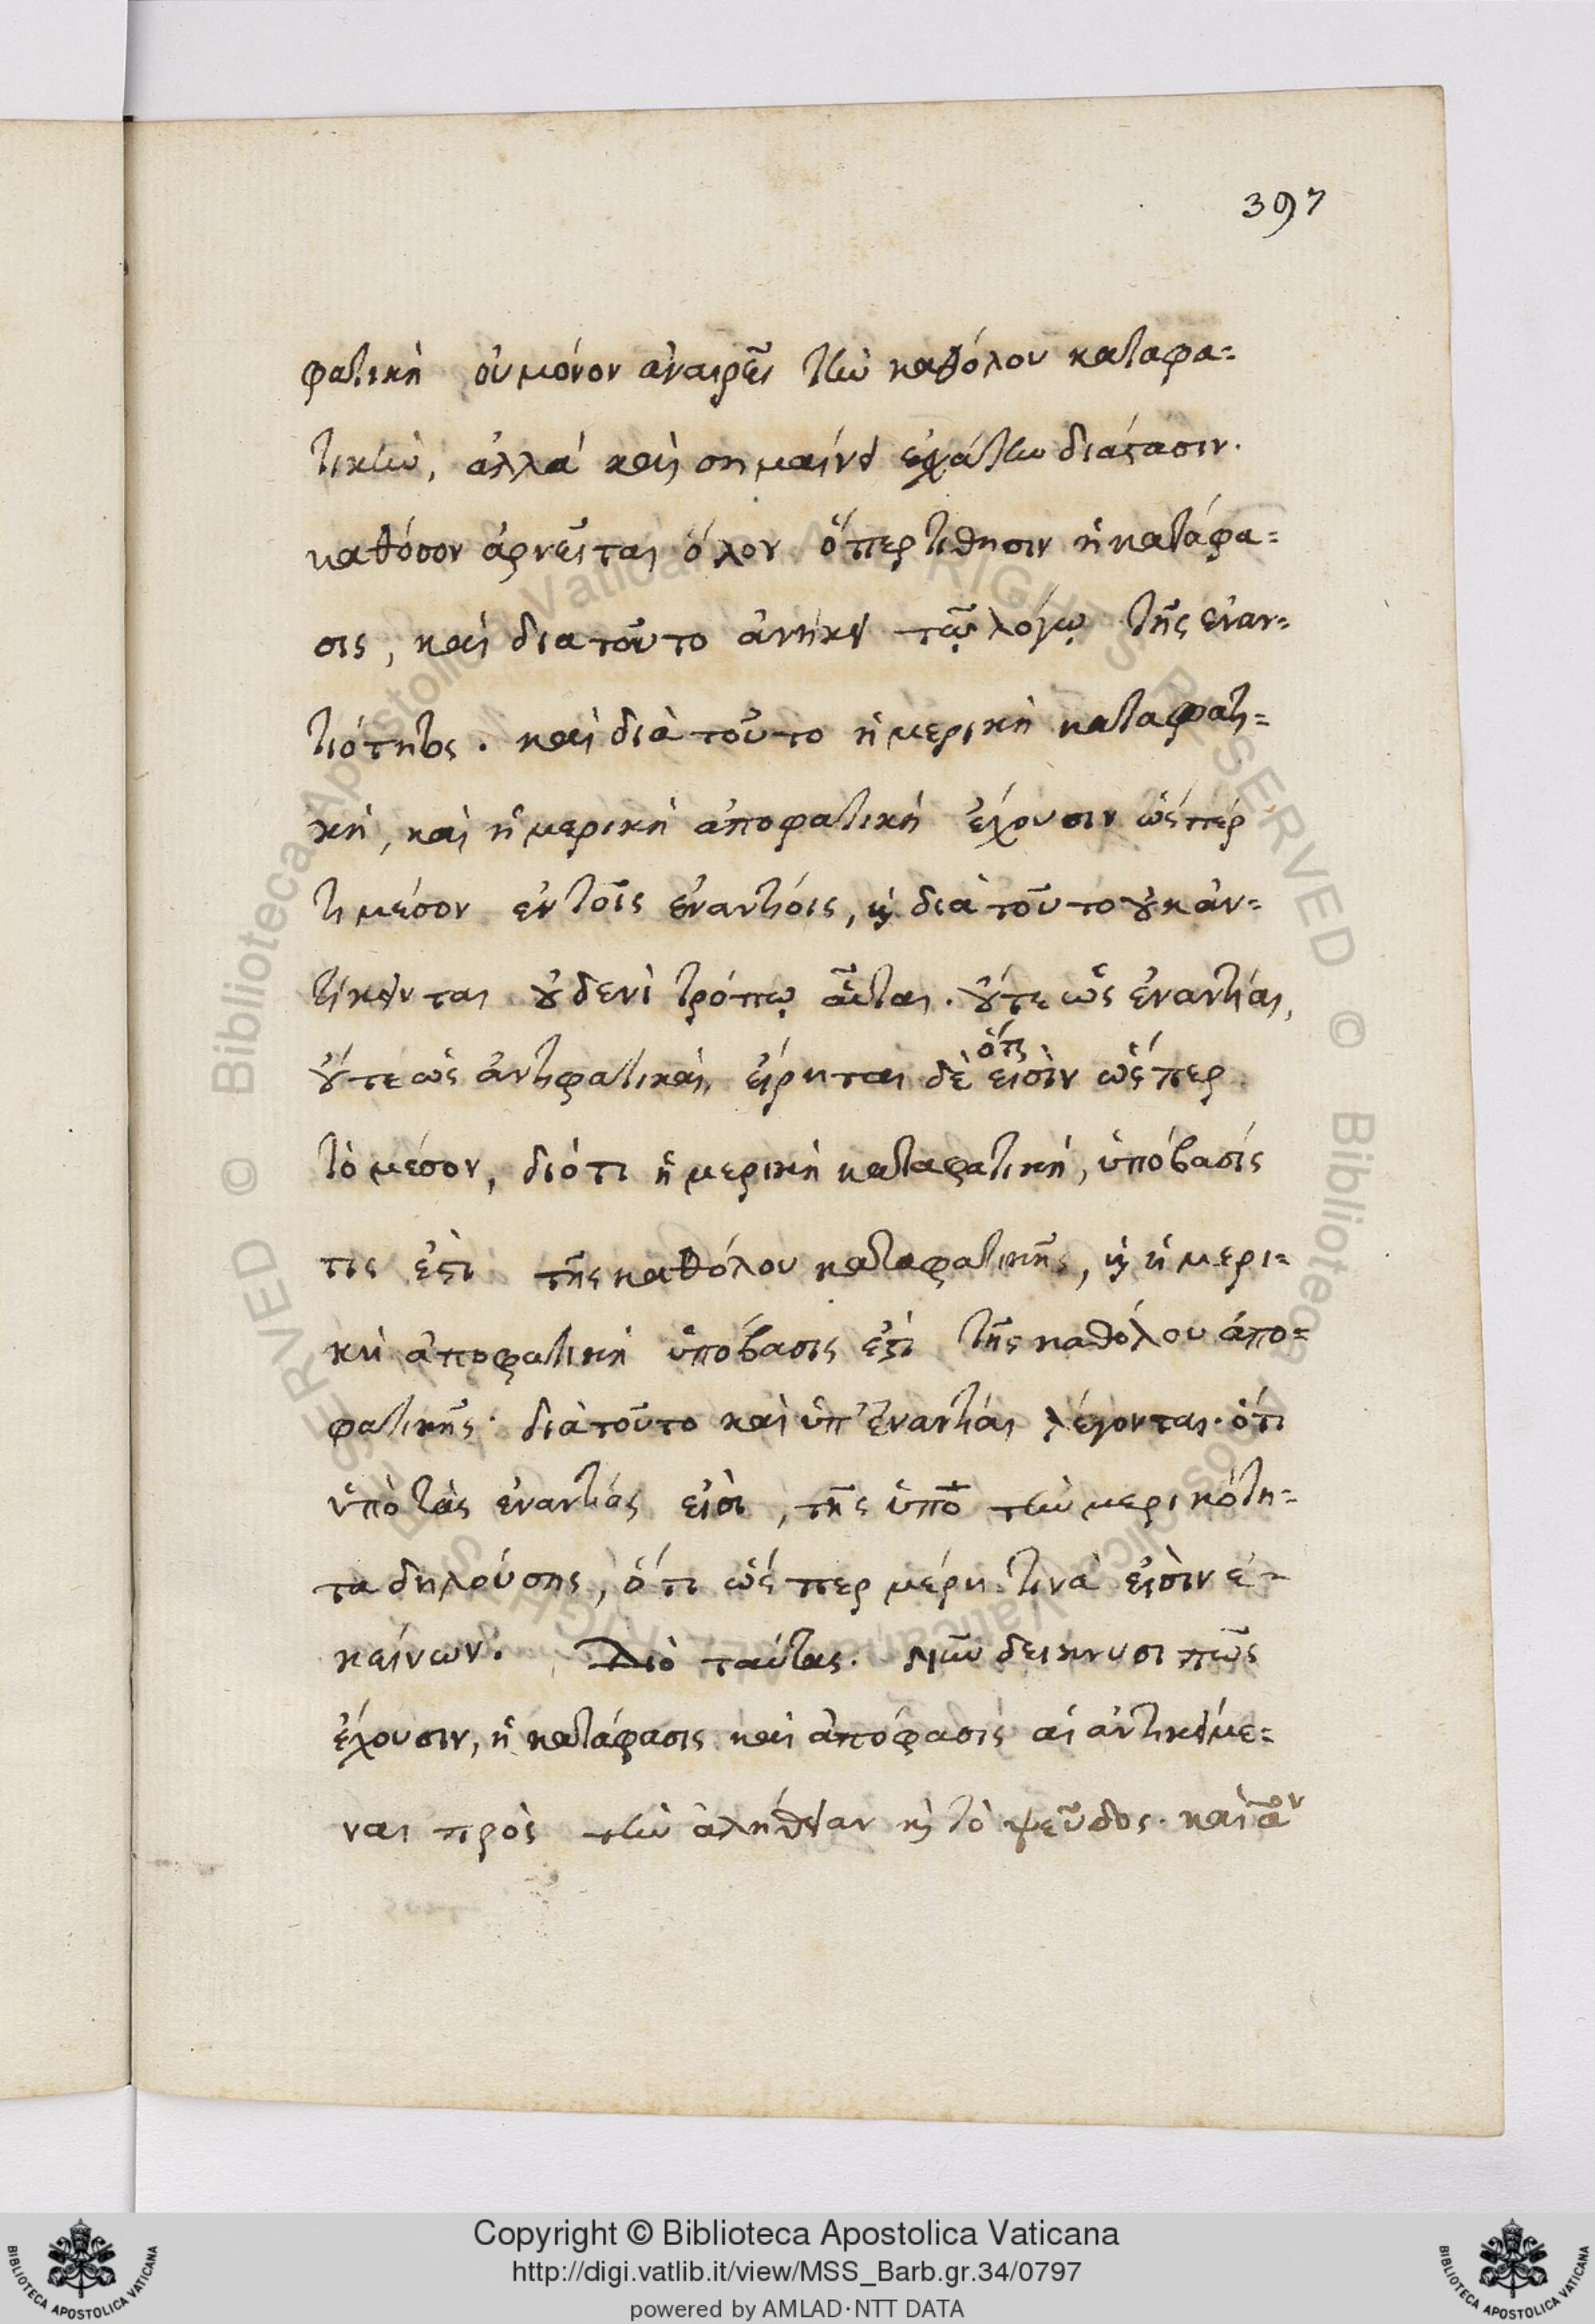 397
φατικὴ οὐ μόνον ἀναιρεῖ τὴν καθόλου καταφα=
τικὴν, ἀλλὰ καὶ σημαίνει ἐσχάτην διάστασιν.
καθόσον ἀρνεῖται ὅλον ὅπερ τίθησιν ἡ κατάφα=
σις, καὶ διὰ τοῦτο ἀνήκει τῷ λόγῳ τῆς ἐναν=
τιότητος. καὶ διὰ τοῦτο ἡ μερικὴ καταφατι=
κὴ, καὶ ἡ μερικὴ ἀποφατικὴ ἔχουσιν ὥσπερ
τι μέσον ἐν τοῖς ἐναντίοις, καὶ διὰ τοῦτο οὐκ ἀν=
τίκεινται οὐδενὶ τρόπῳ αὗται. οὔτε ὡς ἐναντίαι,
οὔτε ὡς ἀντιφατικαὶ, εἴρηται δὲ ὅτι εἰσὶν ὥσπερ
τὸ μέσον, διότι ἡ μερικὴ καταφατικὴ, ὑπόβασίς
τις ἐστὶ τῆς καθόλου καταφατικῆς, καὶ ἡ μερι=
κὴ ἀποφατικὴ ὑπόβασις ἐστὶ τῆς καθόλου ἀπο=
φατικῆς. διὰ τοῦτο καὶ ὑπ' ἐναντίαι λέγονται. ὅτι
ὑπὸ τὰς ἐναντίας εἰσὶ, τῆς ὑπὸ τὴν μερικότη=
τα δηλούσης, ὅτι ὥσπερ μέρη τινὰ εἰσὶν ἐ=
κείνων. Διὸ ταύτας. Νῦν δείκνυσι πῶς
ἔχουσιν, ἡ κατάφασις καὶ ἀπόφασις αἱ ἀντικείμε=
ναι πρὸς τὴν ἀλήθειαν καὶ τὸ ψεῦδος. καὶ ἂν
Copyright © Biblioteca Apostolica Vaticana
http://digi.vatlib.it/view/MSS_Barb.gr.34/0797
powered by AMLAD·NTT DATA